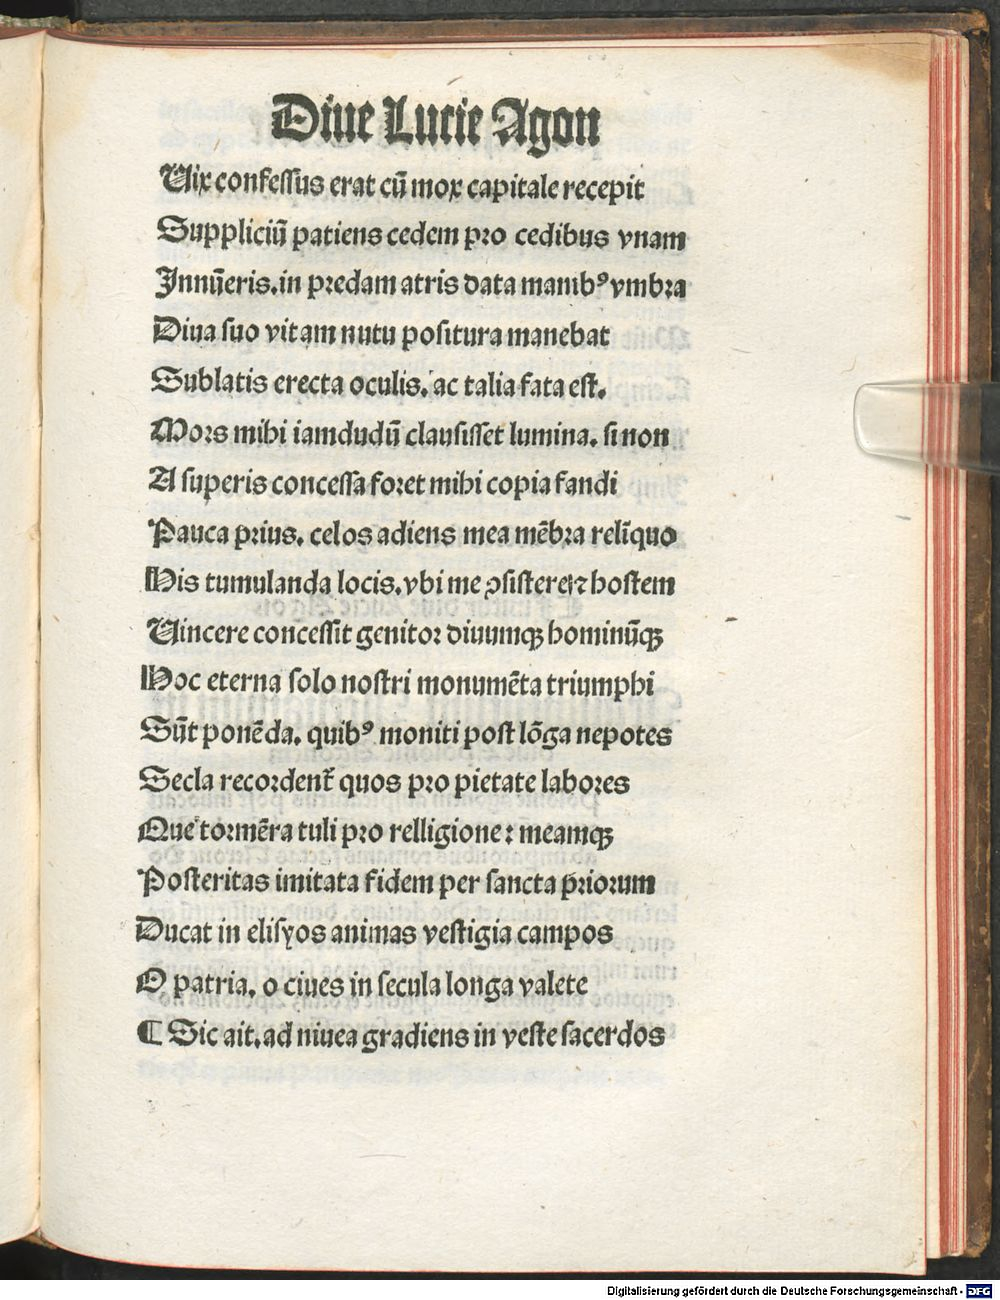 Diue Lucie Agon
Uix confessus erat cū mox capitale recepit
Suppliciū patiens cedem pro cedibus vnam
Innūeris.in predam atris data manibꝰ vmbra
Diua suo vitam nutu positura manebat
Sublatis erecta oculis. ac talia fata est.
Mors mihi iamdudū clausisset lumina. si non
A superis concessa foret mihi copia fandi
Pauca prius. celos adiens mea mēbra relīquo
His tumulanda locis.vbi me ꝯsistere ⁊ hostem
Uincere concessit genitor diuumqꝫ hominūqꝫ
Hoc eterna solo nostri monumēta triumphi
Sūt ponēda. quibꝰ moniti post lōga nepotes
Secla recordent̃ quos pro pietate labores
Que tormēra tuli pro relligione: meamqꝫ
Posteritas imitata fidem per sancta p̄riorum
Ducat in elisyos animas vestigia campos
O patria. o ciues in secula longa valete
¶ Sic ait.ad niuea gradiens in veste sacerdos
Digitalisierung gefördert durch die Deutsche Forschungsgemeinschaft - DFG